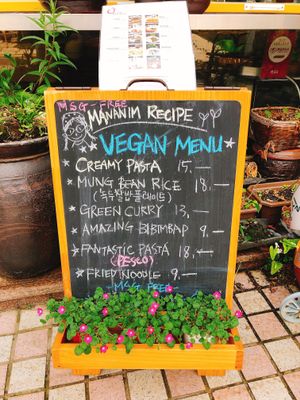 MSG-FREE
MANANIM RECIPE
VEGAN MENU
CREAMY PASTA 15,—
MUNG BEAN RICE 18,—
(녹두찰밥플레이트)
GREEN CURRY 13,—
AMAZING BIBIMBAP 9,—
FANTASTIC PASTA 18,—
(PESCO)
FRIED NOODLE 9,—
MSG FREE